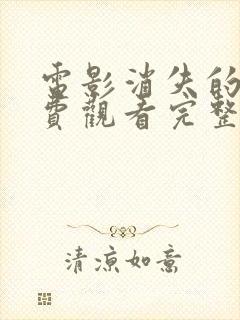 電影消失的
費觀看完整
清涼如意